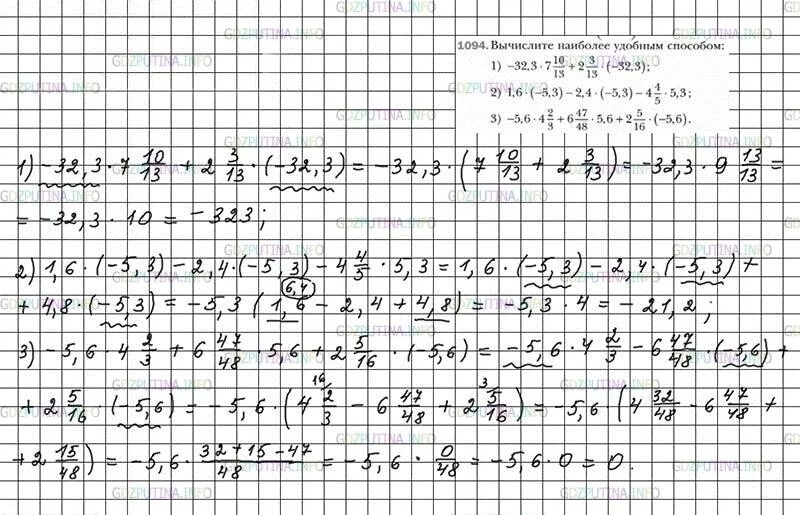 GDZPUTINA.INFO
1094. Вычислите наиболее удобным способом:
1) −32,3 · 7 10/13 + 2 3/13 · (−32,3);
2) 1,6 · (−5,3) − 2,4 · (−5,3) − 4 4/5 · 5,3;
3) −5,6 · 4 2/3 + 6 47/48 · 5,6 + 2 5/16 · (−5,6).
1) −32,3 · 7 10/13 + 2 3/13 · (−32,3) = −32,3 · (7 10/13 + 2 3/13) = −32,3 · 9 13/13 =
= −32,3 · 10 = −323;
2) 1,6 · (−5,3) − 2,4 · (−5,3) − 4 4/5 · 5,3 = 1,6 · (−5,3) − 2,4 · (−5,3) +
6,4
+ 4,8 · (−5,3) = −5,3 (1,6 − 2,4 + 4,8) = −5,3 · 4 = −21,2;
3) −5,6 · 4 2/3 + 6 47/48 · 5,6 + 2 5/16 · (−5,6) = −5,6 · 4 2/3 − 6 47/48 · (−5,6) +
16/ 3/
+ 2 5/16 · (−5,6) = −5,6 · (4 2/3 − 6 47/48 + 2 5/16) = −5,6 · (4 32/48 − 6 47/48 +
+ 2 15/48) = −5,6 · 32+15−47/48 = −5,6 · 0/48 = −5,6 · 0 = 0.